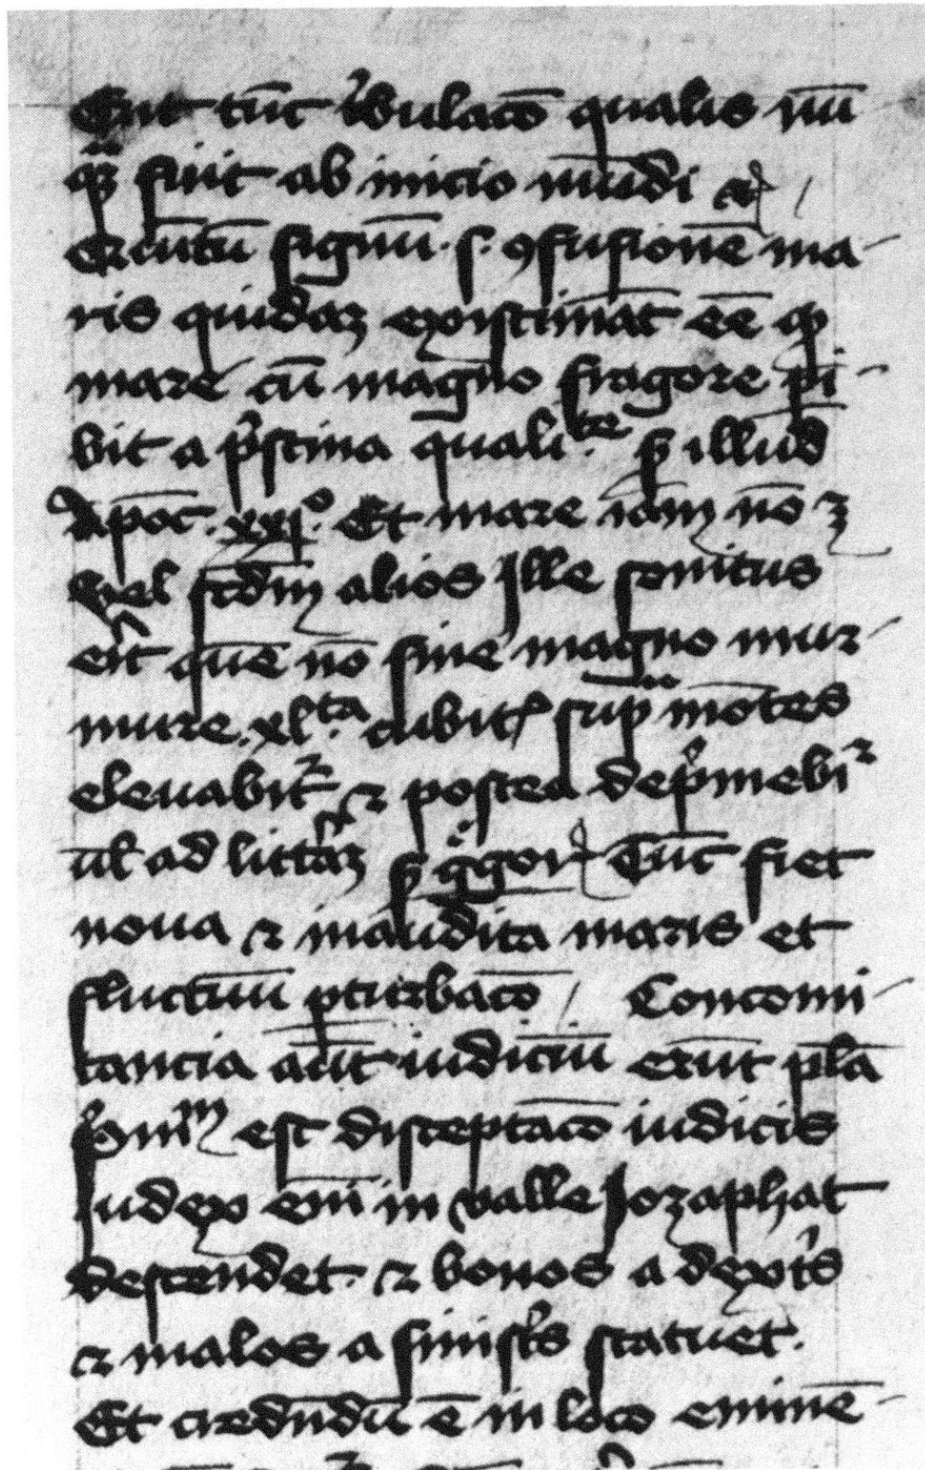 Erit tūc t'bulacō qualis nū
qͣꝫ fuit ab inicio mūdi ⁊cͤ /
Ercūtū signū · s · ꝯfusionē ma-
ris quidaꝫ existimāt eē ꝙ
mare cū magno fragore pi-
bit a p'stina quali.te ẜ illud
Apoc̄ · xxj° · Et mare iām nō ē
Uel scd̄m alios Ille sonitus
er̄it quē nō sine magno mur-
mure · xl.ta cubitꝭ sup̄ mōtes
eleuabit᷑ ⁊ postea dep'mebi᷑
ul' ad litt'aꝫ ẜ g'gor Tūc fiet
noua ⁊ inaudita maris et
fluctuū ꝑturbacō / Concomi-
tancia aūt iudiciū erūt pl'a
P'mūm est disceptacō iudicis
Judex eni in valle Jozaphat
descendet · ⁊ bonos a dext'is
⁊ malos a sinist's statuet ·
Et credn̄dū ē in loco eminē-